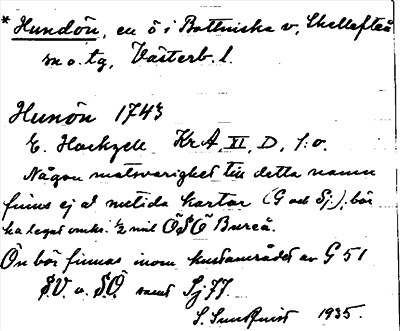 * Hundön, en ö i Bottniska v, Skellefteå
sn o. tg, Västerb. l.
Hunön 1743
E. Hackzell KrA, XI, D, 1:o.
Någon motsvarighet till detta namn
finns ej å nutida kartor (G och Sj.), bör
ha legat omkr. 1/2 mil ÖSÖ Bureå.
Ön bör finnas inom kustområdet av G 51
SV. o. SÖ. samt Sj 77.
S. Sundqvist 1935.